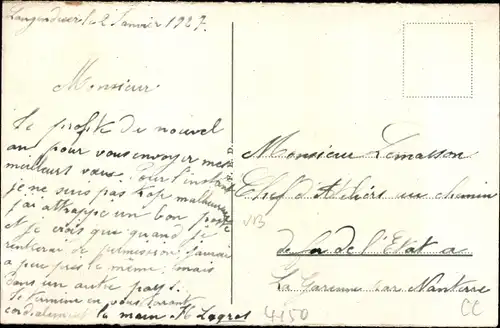 le 2 Janvier 1927.
Monsieur
Je profite du nouvel
an pour vous envoyer mes
meilleurs vœux. Pour l'instant
je ne suis pas trop malheureux
j'ai attrappé un bon poste
et je crois que quand je
rentrerai de permission j'aurai
a peu près le même, mais
dans un autre pays.
Je termine en vous serrant
cordialement la main H Legros
Monsieur Lemasson
Chef d'Ateliers au chemin
de fer de l'Etat a
La Garenne par Nanterre
4150
CC